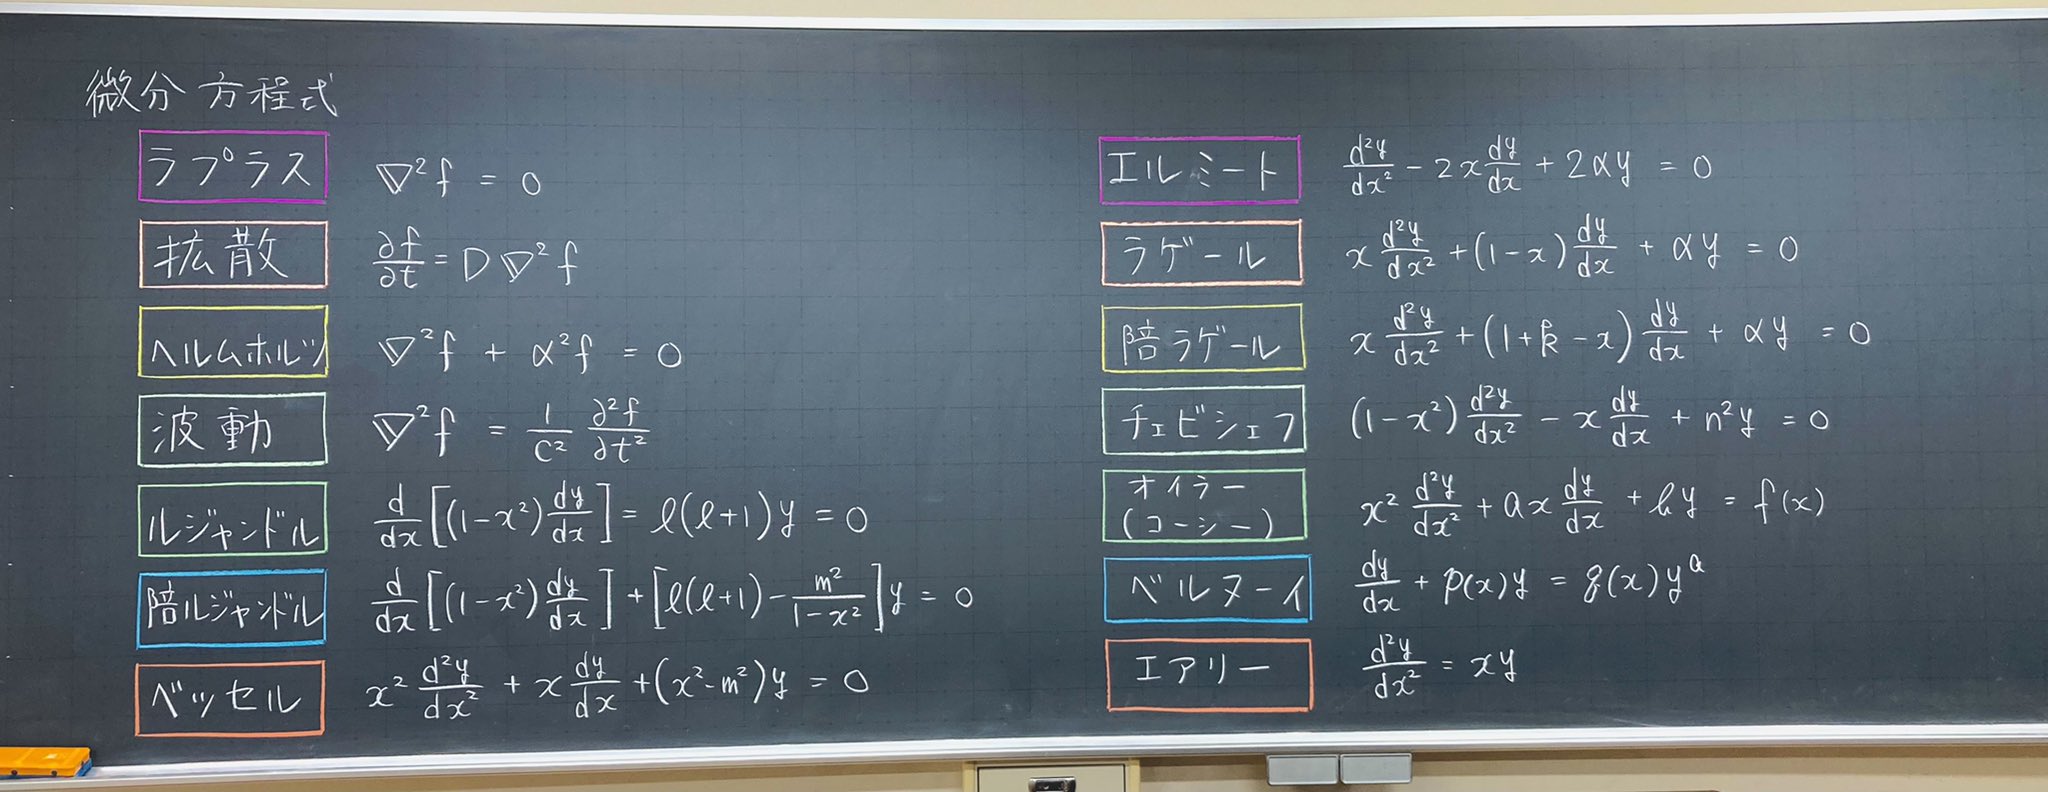 微分方程式
ラプラス ∇²f = 0
拡散 ∂f/∂t = D∇²f
ヘルムホルツ ∇²f + α²f = 0
波動 ∇²f = 1/c² ∂²f/∂t²
ルジャンドル d/dx[(1-x²)dy/dx] = ℓ(ℓ+1)y = 0
陪ルジャンドル d/dx[(1-x²)dy/dx] + [ℓ(ℓ+1) - m²/(1-x²)]y = 0
ベッセル x² d²y/dx² + x dy/dx + (x²-m²)y = 0
エルミート d²y/dx² - 2x dy/dx + 2αy = 0
ラゲール x d²y/dx² + (1-x) dy/dx + αy = 0
陪ラゲール x d²y/dx² + (1+k-x) dy/dx + αy = 0
チェビシェフ (1-x²) d²y/dx² - x dy/dx + n²y = 0
オイラー
(コーシー) x² d²y/dx² + ax dy/dx + by = f(x)
ベルヌーイ dy/dx + p(x)y = q(x)yᵃ
エアリー d²y/dx² = xy